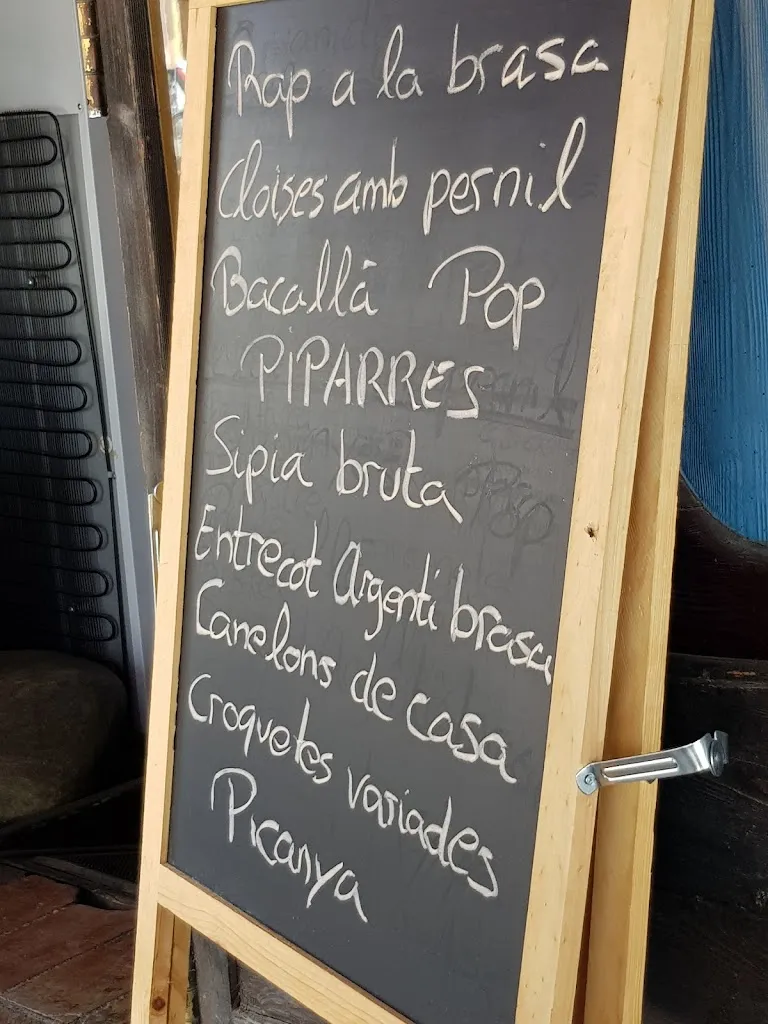 Rap a la brasa
Cloises amb pernil
Bacallà Pop
PIPARRES
Sipia bruta
Entrecot Argentí brasa
Canelons de casa
Croquetes variades
Picanya